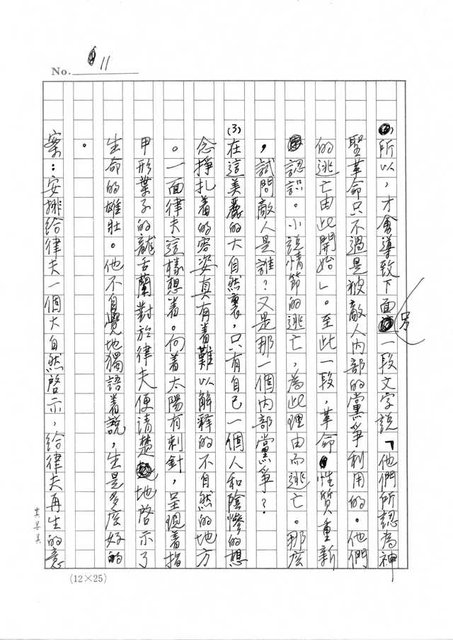 No. 11
所以，才會導致下面另一段文字說「他們所認為神
聖革命只不過是被敵人內部的黨爭利用的。他們
的逃亡由此開始」。至此一段，革命性質重新
認識。小說情節的逃亡，為此理由而逃亡。那麼
，試問敵人是誰？又是那一個內部黨爭？
(3)在這美麗的大自然裏，只有自己一個人和陰慘的想
念掙扎着的容姿真有着難以解釋的不自然的地方
。一面律夫這樣想着。向着太陽有刺針，呈現着指
甲形葉子的龍古蘭對於律夫便清楚地啓示了
生命的雄壯。他不自覺地獨語着說，生是多麼好的
。
案：安排給律夫一個大自然啓示，給律夫再生的意
(12×25)